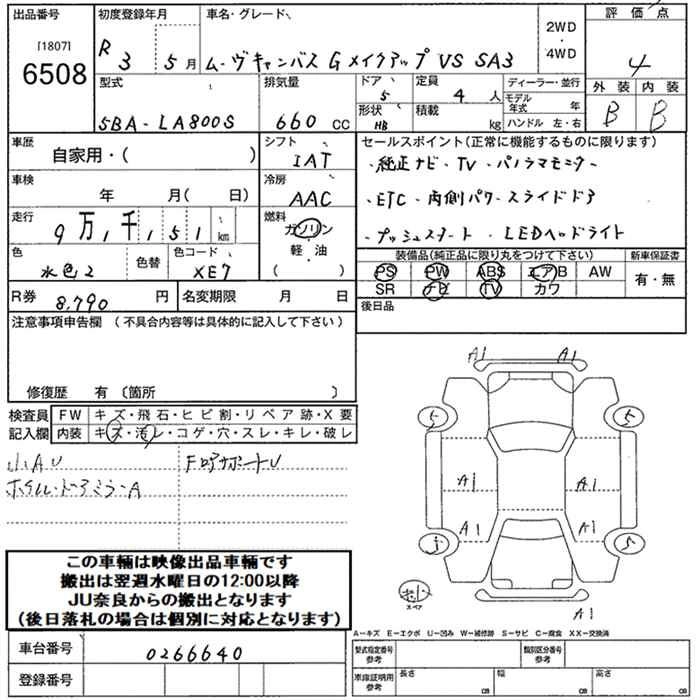 出品番号 初度登録年月 車名・グレード 2WD 評価点
[1807] R 3 5月 ムーヴキャンバス G メイクアップ VS SA3 4WD 4
6508
型式 排気量 ドア 定員 ディーラー・並行 外装 内装
5BA-LA800S 660 CC 5 4 人 モデル年式 年 B B
形状 積載 ハンドル 左・右
HB kg
車歴 シフト セールスポイント(正常に機能するものに限ります)
自家用・( ) IAT ・純正ナビ・TV・パノラマモニター
車検 冷房
年 月( 日) AAC ・ETC・両側パワースライドドア
走行 燃料
9万,千,151 km ガソリン ・プッシュスタート・LEDヘッドライト
軽・油
( )
色 色替 色コード 装備品(純正品に限り丸をつけて下さい) 新車保証書
水色2 XE7 PS PW ABS エアB AW 有・無
SR ナビ TV カワ
R券 8,790 円 名変期限 月 日 後日品
注意事項申告欄 (不具合内容等は具体的に記入して下さい)
修復歴 有 (箇所 )
検査員 FW キズ・飛石・ヒビ割・リペア跡・X要
記入欄 内装 キズ・汚レ・コゲ・穴・スレ・キレ・破レ
小AU
ホイル・ドアミラーA
A1 A1
5 5
A1 A1
A1 A1
5 5
スペア
A1
この車輛は映像出品車輛です
搬出は翌週水曜日の12:00以降
JU奈良からの搬出となります
(後日落札の場合は個別に対応となります)
A-キズ E-エクボ U-凹み W-補修跡 S-サビ C-腐食 XX-交換済
車台番号 0266640 型式指定番号 参考 類別区分番号 参考
登録番号 車庫証明用 参考 長さ cm 幅 cm 高さ cm